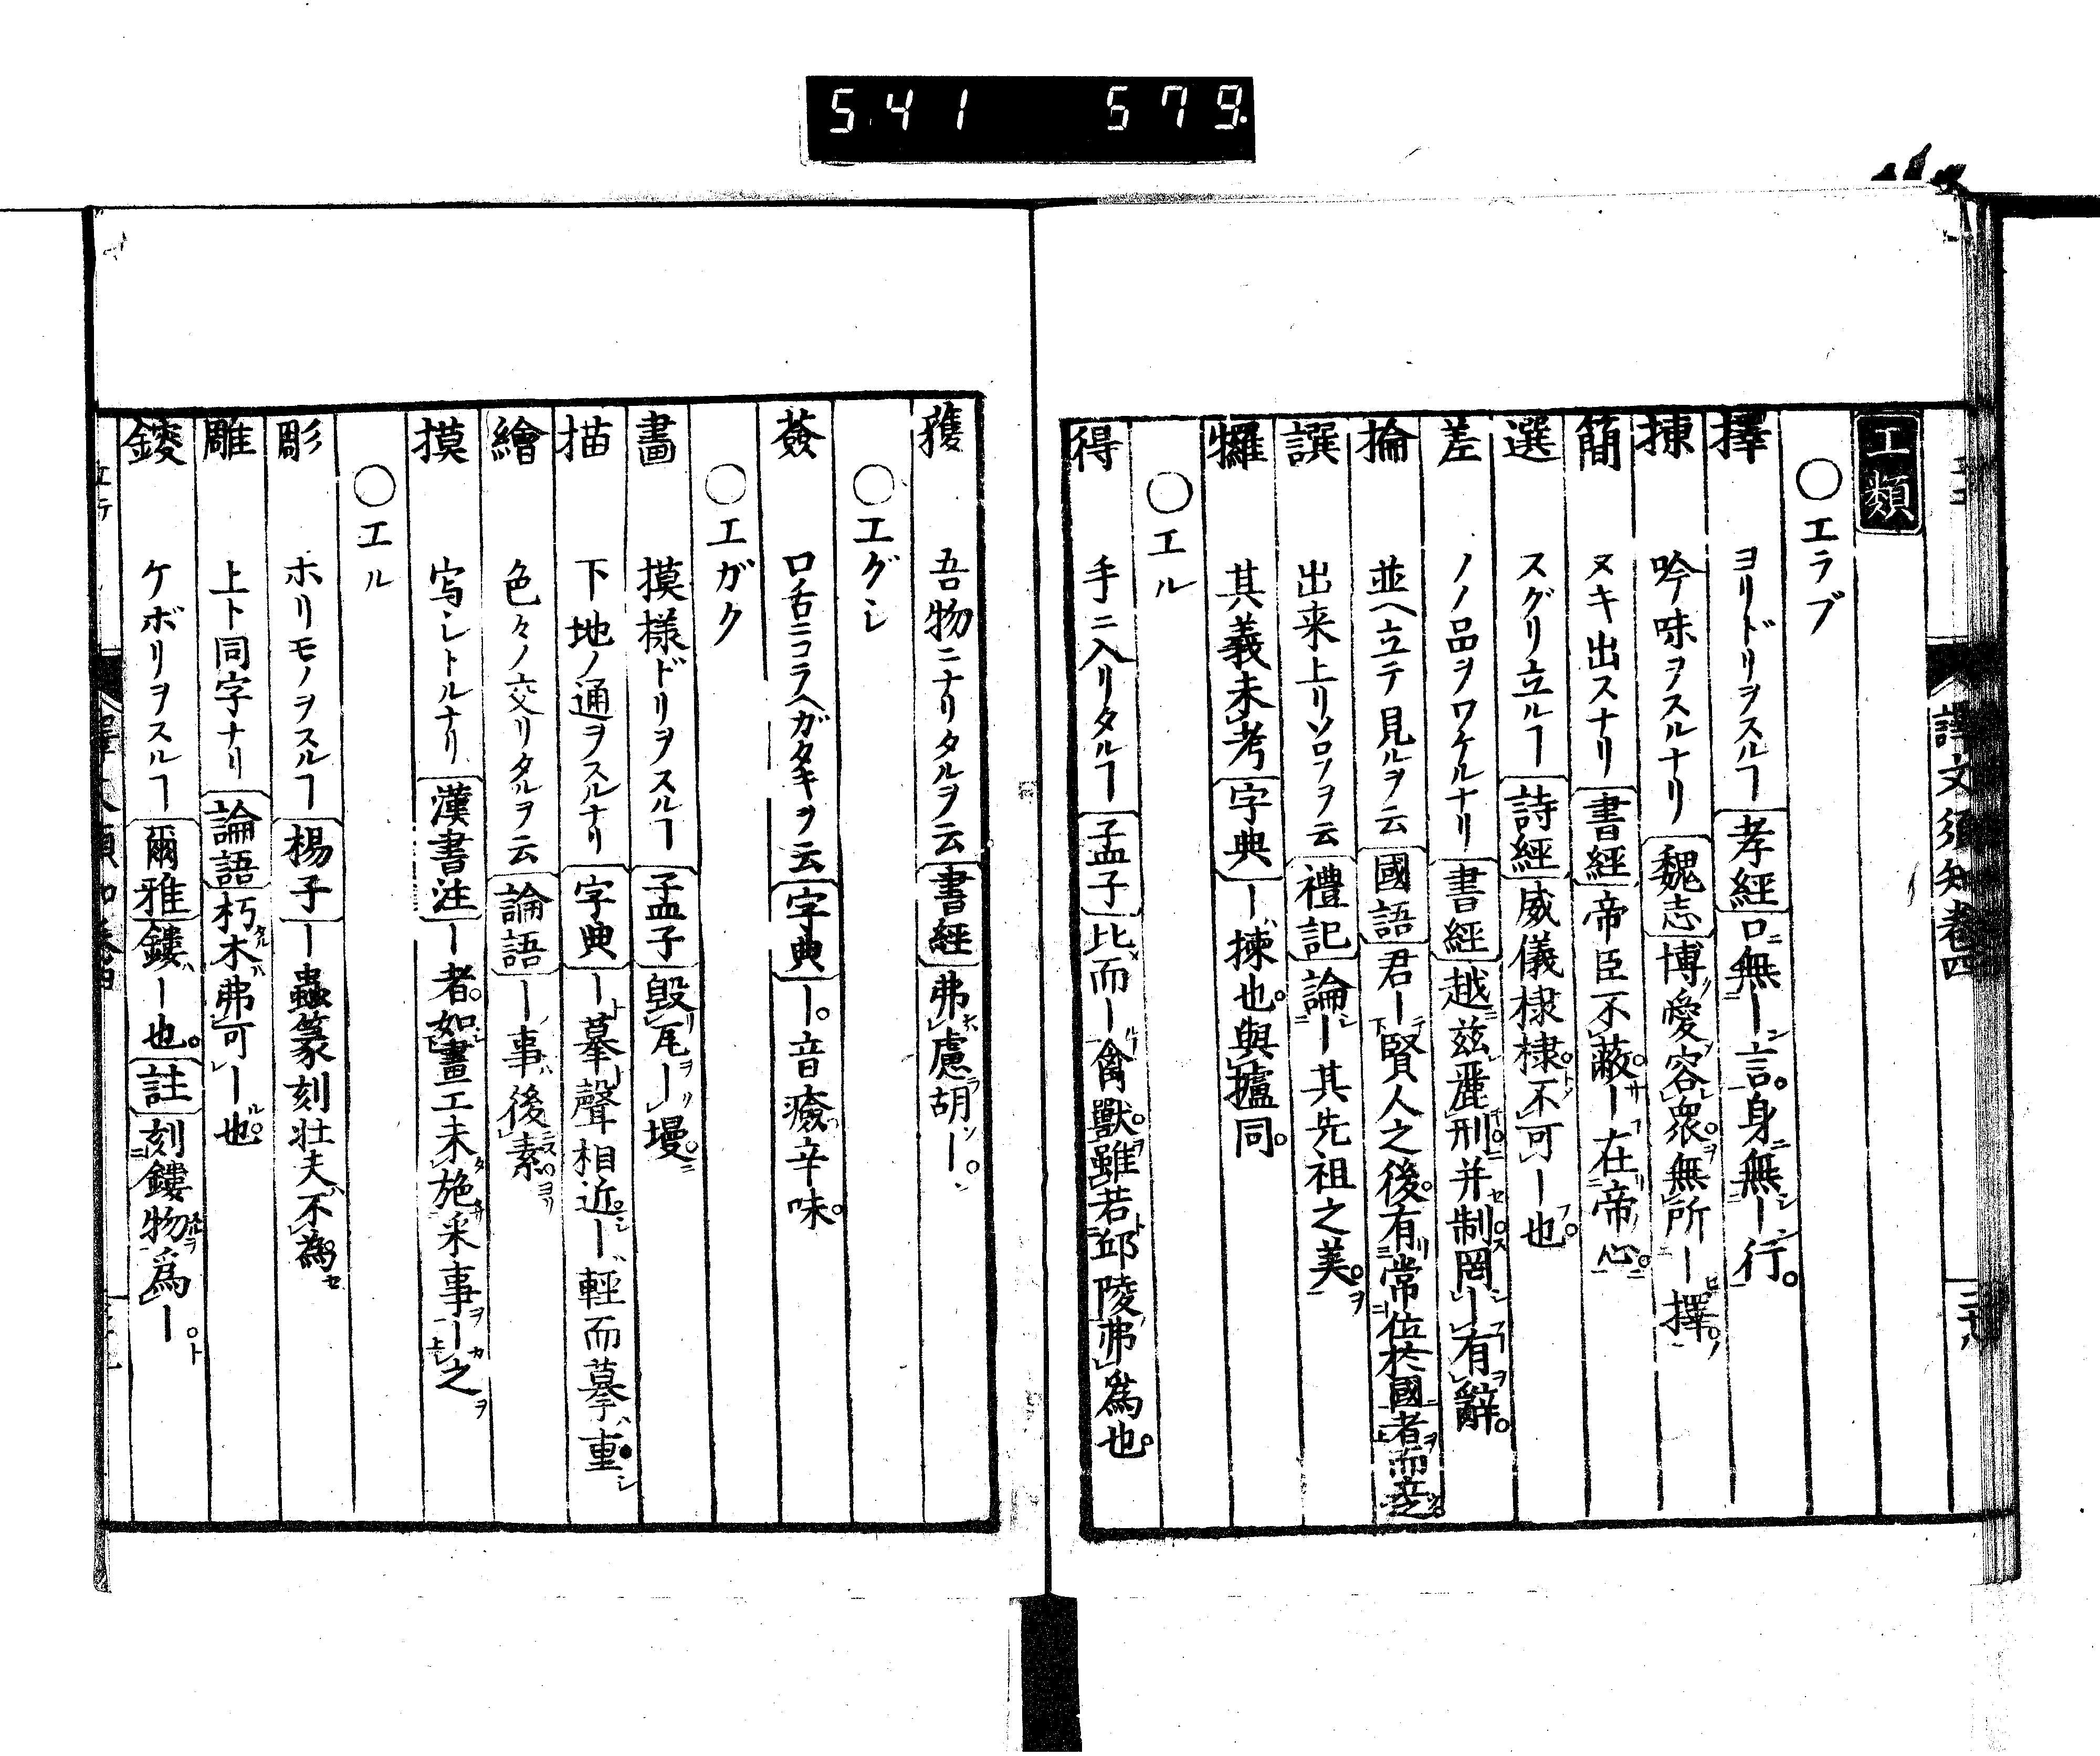 541 579.
譯文須知卷四
エ類
○エラブ
擇 ヨリドリヲスルヿ 孝經 口無ー言。身無ー行。
揀 吟味ヲスルナリ 魏志 博愛容衆。無所ー擇。
簡 ヌキ出スナリ 書經 帝臣不蔽。ー在帝心。
選 スグリ立ルヿ 詩經 威儀棣棣。不可ー也。
差 ノノ品ヲワケルナリ 書經 越茲麗刑并制罔ー有辭。
掄 並ヘ立テ見ルヲ云 國語 君ー賢人之後。有常位於國者而立之。
譔 出来上リソロフヲ云 禮記 論ー其先祖之美。
其義未考 字典 ー揀也。與攎同。
○エル
得 手ニ入リタルヿ 孟子 比而ー禽獸。雖若邱陵弗為也。
獲 吾物ニナリタルヲ云 書經 弗慮胡ー。
○エグシ
蘞 口舌ニコラヘガタキヲ云 字典 ー。音癈辛味。
○エガク
畵 摸樣ドリヲスルヿ 孟子 毀瓦ー墁。
描 下地ノ通ヲスルナリ 字典 ー摹聲相近。ー輕而摹重
繪 色々ノ交リタルヲ云 論語 ー事後素。
摸 写シトルナリ 漢書注 ー者。如畫工未施采事ー之
○エル
彫 ホリモノヲスルヿ 楊子 ー蟲篆刻壮夫不為
雕 上ト同字ナリ 論語 朽木弗可ー也。
鋑 ケボリヲスルヿ 爾雅 鏤ー也。註 刻鏤物為ー。